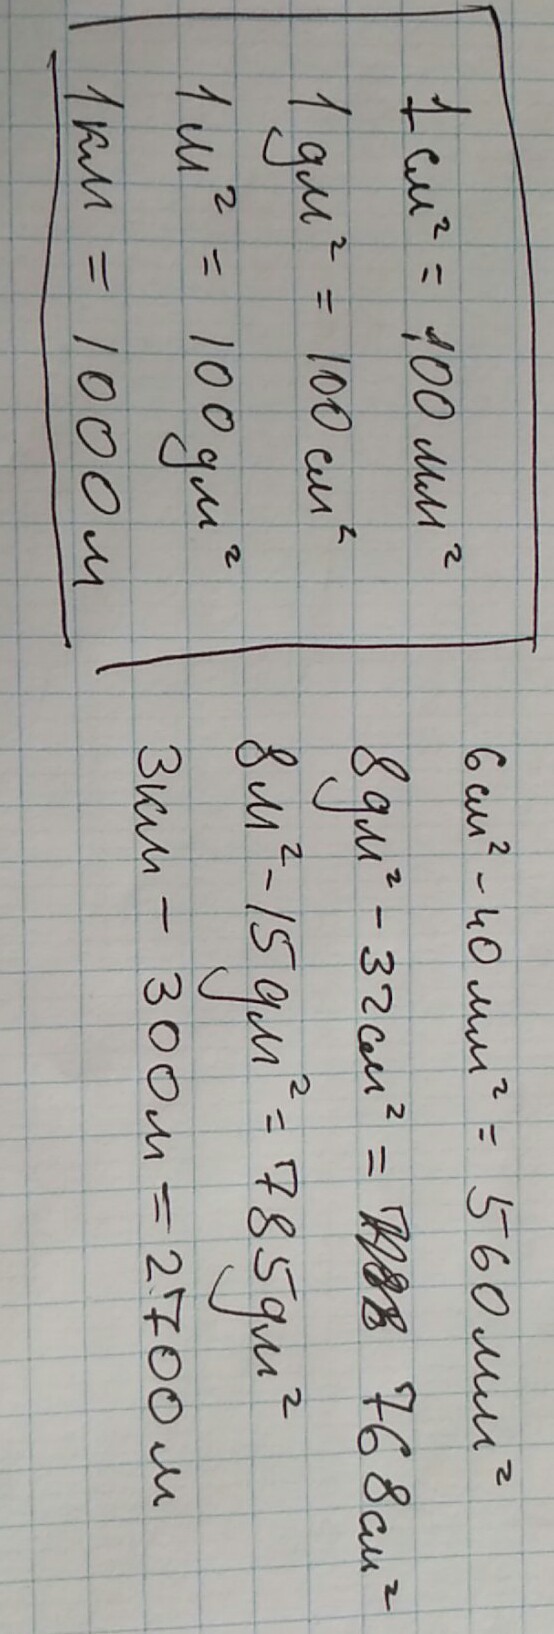 1 см² = 100 мм²
1 дм² = 100 см²
1 м² = 100 дм²
1 км = 1000 м
6 см² - 40 мм² = 560 мм²
8 дм² - 32 см² = 768 см²
8 м² - 15 дм² = 785 дм²
3 км - 300 м = 2700 м